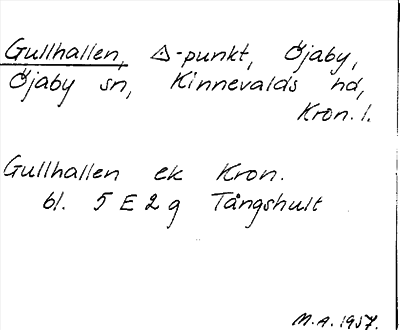 Gullhallen, △-punkt, Öjaby,
Öjaby sn, Kinnevalds hd,
Kron. l.
Gullhallen ek Kron.
bl. 5 E 2 g Tångshult
M.A. 1957.